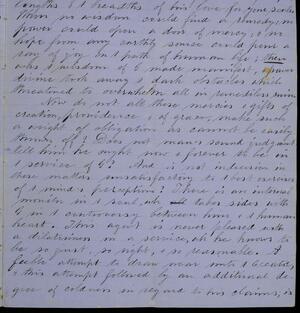 lengths & breadths of his love for your souls.
When no wisdom could find a remedy, no
power could open a door of mercy, & no
hope from any earthly source could pour a
ray of joy on path of human life, then
was & wisdom of G made manifest, & power
divine took away & dark obstacles which
threatened to overwhelm all in remediless ruin.
Now do not all these mercies & gifts of
creation, providence & of grace, make such
a weight of obligation as cannot be easily
thrown off? Does not man's sound judgt
tell him he ought now & forever to be in
& service of G? And is not indecision in
these matters unsatisfactory to & best exercise
of & mind's perception? There is an internal
monitor in & soul, wh takes sides with
G in & controversy between him & & human
heart. This agent is never pleased with
a dilatoriness in a service, wh he knows to
be so just, so right, & so reasonable. A
feeble attempt to draw near unto & Creator,
& this attempt followed by an additional de-
gree of coldness in regard to his claims, is